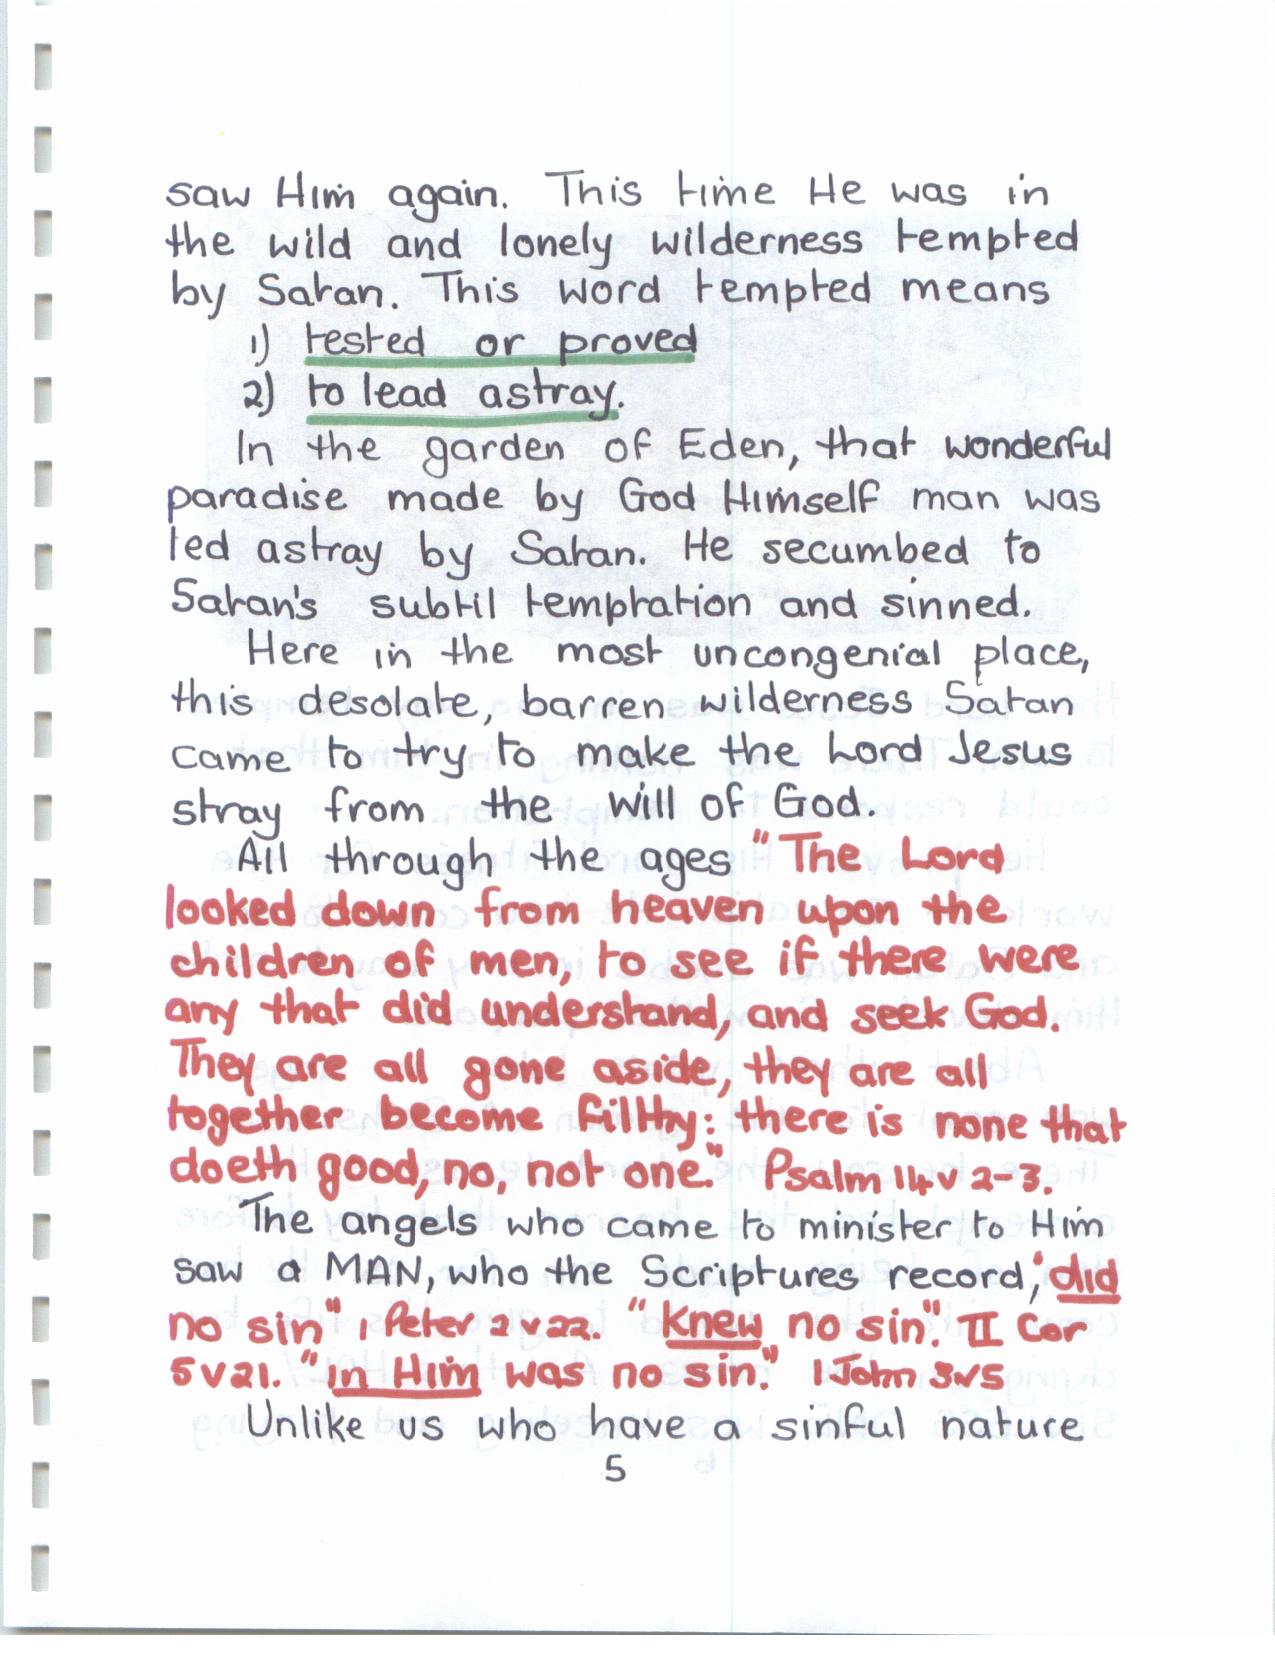 saw Him again. This time He was in
the wild and lonely wilderness tempted
by Satan. This word tempted means
1) tested or proved
2) to lead astray.
In the garden of Eden, that wonderful
paradise made by God Himself man was
led astray by Satan. He secumbed to
Satan's subtil temptation and sinned.
Here in the most uncongenial place,
this desolate, barren wilderness Satan
came to try to make the Lord Jesus
stray from the will of God.
All through the ages "The Lord
looked down from heaven upon the
children of men, to see if there were
any that did understand, and seek God.
They are all gone aside, they are all
together become filthy: there is none that
doeth good, no, not one." Psalm 14 v 2-3.
The angels who came to minister to Him
saw a MAN, who the Scriptures record, "did
no sin" 1 Peter 2 v 22. "Knew no sin". II Cor
5 v 21. "In Him was no sin." 1 John 3 v 5
Unlike us who have a sinful nature
5